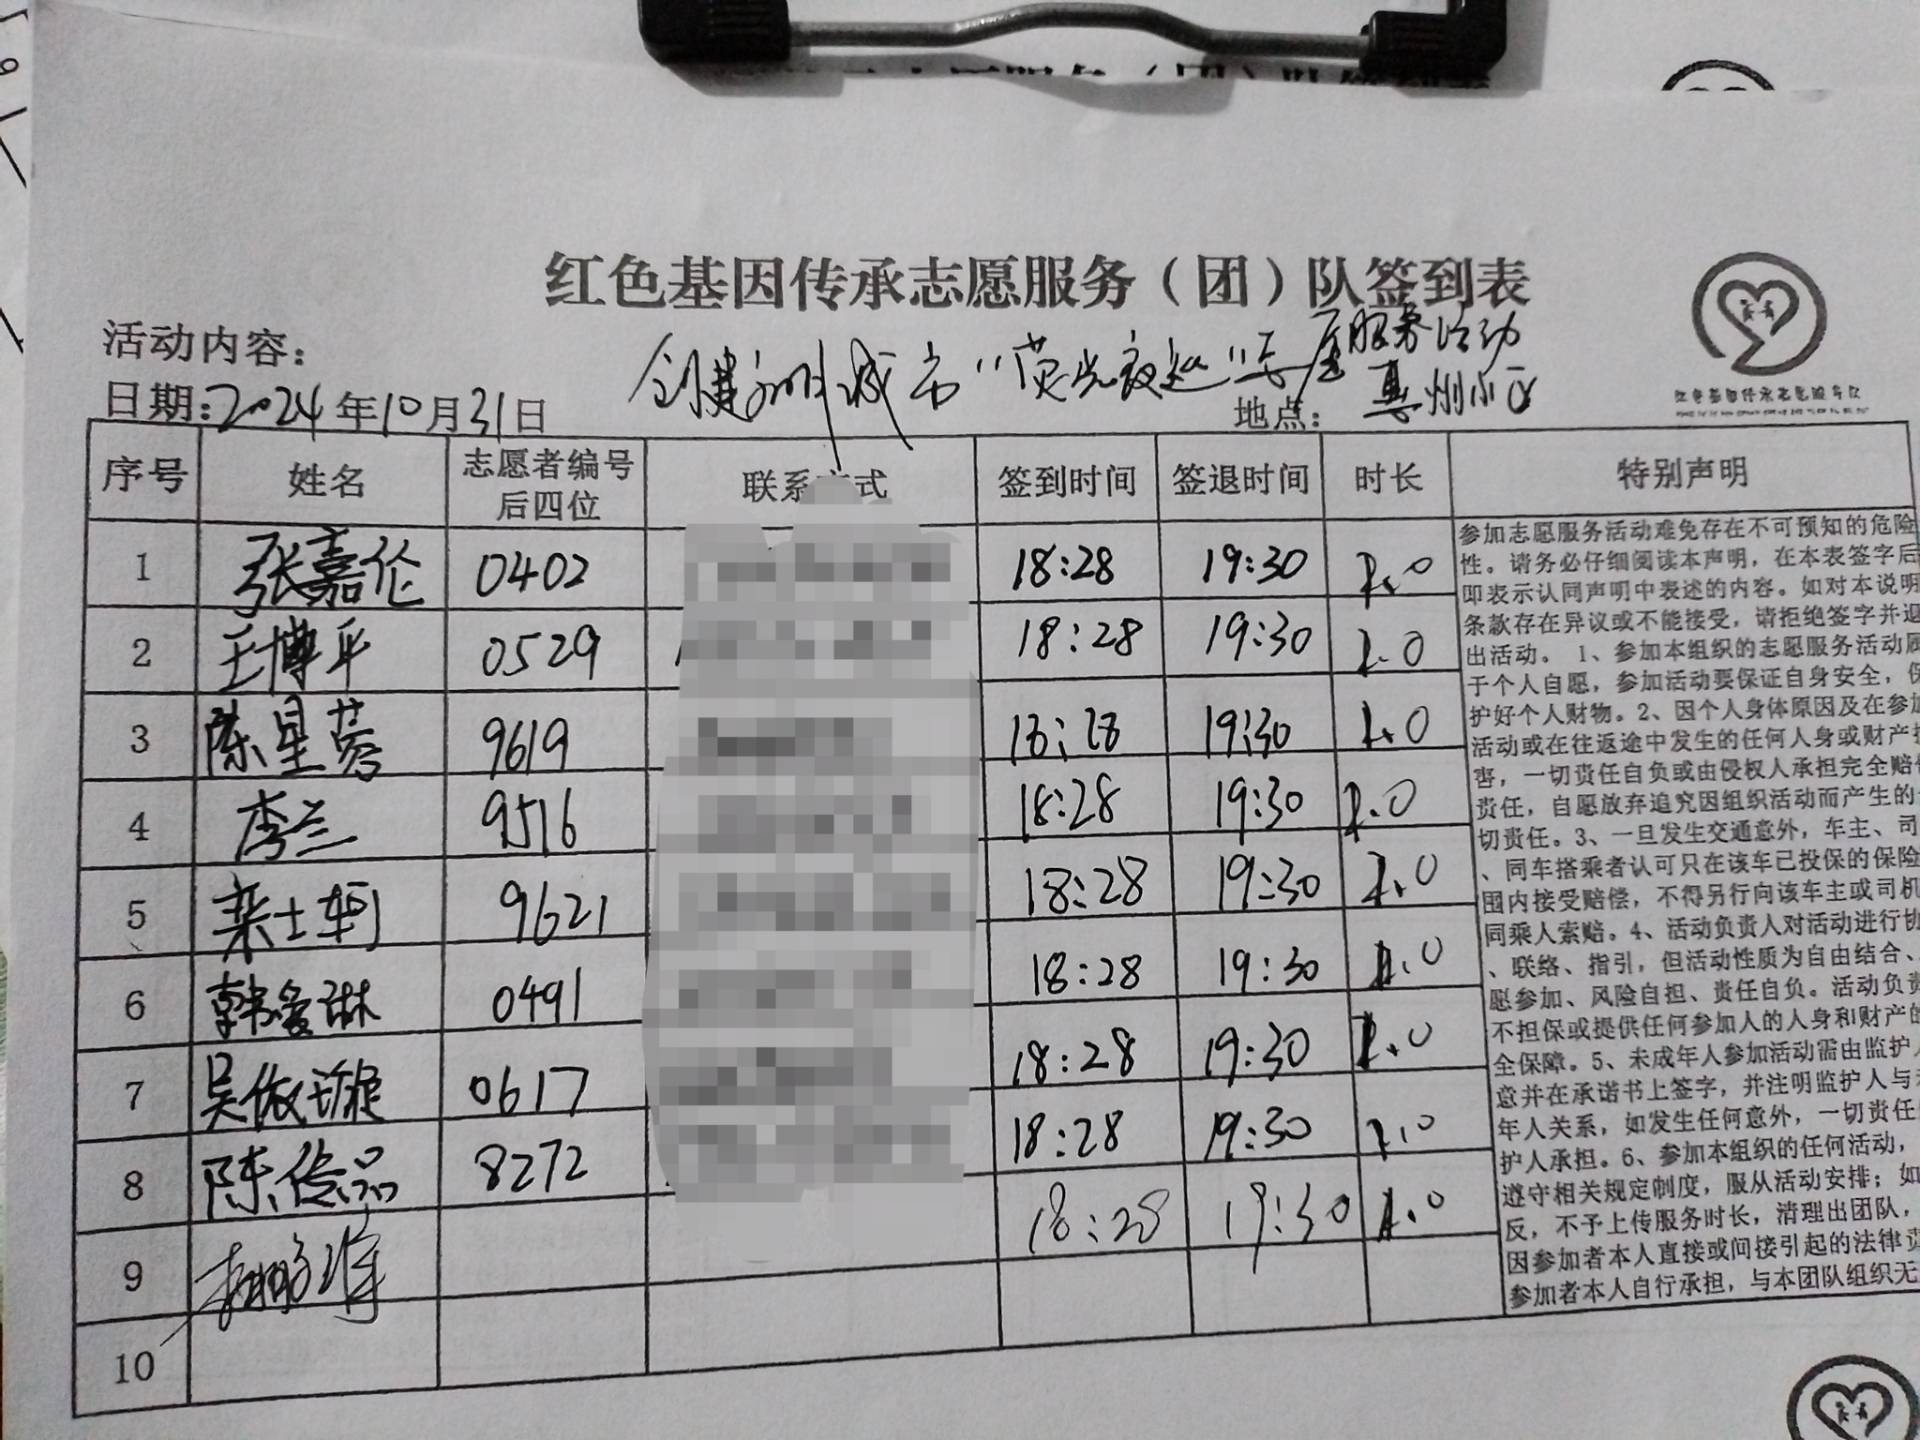 红色基因传承志愿服务（团）队签到表
活动内容：
创建文明城市“荧光夜巡”志愿服务活动
日期：2024年10月31日
地点：惠州小区
序号 姓名 志愿者编号后四位 联系方式 签到时间 签退时间 时长 特别声明
1 张嘉伦 0402 18:28 19:30 1.0
2 王博平 0529 18:28 19:30 1.0
3 陈星蓉 9619 18:28 19:30 1.0
4 李兰 9516 18:28 19:30 1.0
5 士轲 9621 18:28 19:30 1.0
6 韩爱琳 0491 18:28 19:30 1.0
7 吴依璇 0617 18:28 19:30 1.0
8 陈俊品 8272 18:28 19:30 1.0
9 18:28 19:30 1.0
10
参加志愿服务活动难免存在不可预知的危险
性。请务必仔细阅读本声明，在本表签字后
即表示认同声明中表述的内容。如对本说明
条款存在异议或不能接受，请拒绝签字并退
出活动。1、参加本组织的志愿服务活动属
于个人自愿，参加活动要保证自身安全，保
护好个人财物。2、因个人身体原因及在参加
活动或在往返途中发生的任何人身或财产损
害，一切责任自负或由侵权人承担完全赔偿
责任，自愿放弃追究因组织活动而产生的一
切责任。3、一旦发生交通意外，车主、司
、同车搭乘者认可只在该车已投保的保险
围内接受赔偿，不得另行向该车主或司机
同乘人索赔。4、活动负责人对活动进行协
、联络、指引，但活动性质为自由结合、
愿参加、风险自担、责任自负。活动负责
不担保或提供任何参加人的人身和财产的
全保障。5、未成年人参加活动需由监护人
意并在承诺书上签字，并注明监护人与未
年人关系，如发生任何意外，一切责任
护人承担。6、参加本组织的任何活动，
遵守相关规定制度，服从活动安排；如
反，不予上传服务时长，清理出团队，
因参加者本人直接或间接引起的法律责
参加者本人自行承担，与本团队组织无